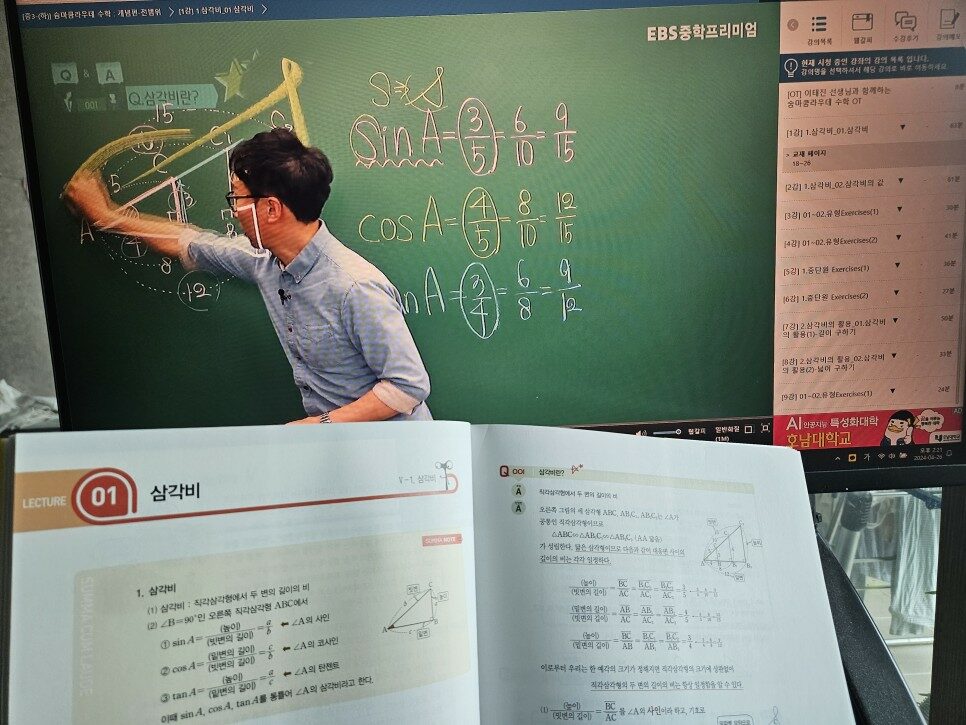 [중3-(하)] 숨마쿰라우데 수학 : 개념편-전범위 > [1강] 1.삼각비_01 삼각비 >
EBS중학프리미엄
Q & A
001
Q.삼각비란?
15
5
3
4
8
12
A
S
Sin A = 3/5 = 6/10 = 9/15
cos A = 4/5 = 8/10 = 12/15
an A = 3/4 = 6/8 = 9/12
강의목록
책갈피
수강후기
강의메모
현재 시청 중인 강좌의 강의 목록 입니다.
강의명을 선택하셔서 해당 강의로 바로 이동하세요.
[OT] 이태진 선생님과 함께하는
숨마쿰라우데 수학 OT
[1강] 1.삼각비_01.삼각비 ▼
교재 페이지
18~26
[2강] 1.삼각비_02.삼각비의 값 ▼
[3강] 01~02.유형Exercises(1) ▼
[4강] 01~02.유형Exercises(2) ▼
[5강] 1.중단원 Exercises(1) ▼
[6강] 1.중단원 Exercises(2) ▼
27분
[7강] 2.삼각비의 활용_01.삼각비
의 활용(1)-길이 구하기 ▼
50분
[8강] 2.삼각비의 활용_02.삼각비
의 활용(2)-넓이 구하기 ▼
[9강] 01~02.유형Exercises(1) ▼
24분
책갈피
일반화질
(1M)
AD
AI인공지능 특성화대학
호남대학교
오후 2:21
2024-04-26
LECTURE 01 삼각비
V-1. 삼각비
SUMMA NOTE
1. 삼각비
(1) 삼각비 : 직각삼각형에서 두 변의 길이의 비
(2) ∠B=90°인 오른쪽 직각삼각형 ABC에서
① sin A = (높이)/(빗변의 길이) = a/b ← ∠A의 사인
② cos A = (밑변의 길이)/(빗변의 길이) = c/b ← ∠A의 코사인
③ tan A = (높이)/(밑변의 길이) = a/c ← ∠A의 탄젠트
이때 sin A, cos A, tan A를 통틀어 ∠A의 삼각비라고 한다.
Q 001 삼각비란?
A 직각삼각형에서 두 변의 길이의 비
A 오른쪽 그림의 세 삼각형 ABC, AB₁C₁, AB₂C₂는 ∠A가
공통인 직각삼각형이므로
△ABC∽△AB₁C₁∽△AB₂C₂ (AA 닮음)
가 성립한다. 닮은 삼각형이므로 다음과 같이 대응변 사이의
길이의 비는 각각 일정하다.
(높이)/(빗변의 길이) = BC/AC = B₁C₁/AC₁ = B₂C₂/AC₂
(밑변의 길이)/(빗변의 길이) = AB/AC = AB₁/AC₁ = AB₂/AC₂
(높이)/(밑변의 길이) = BC/AB = B₁C₁/AB₁ = B₂C₂/AB₂
이로부터 우리는 한 예각의 크기가 정해지면 직각삼각형의 크기에 상관없이
직각삼각형의 두 변의 길이의 비는 항상 일정함을 알 수 있다
(1) (높이)/(빗변의 길이) = BC/AC 를 ∠A의 사인이라 하고, 기호로